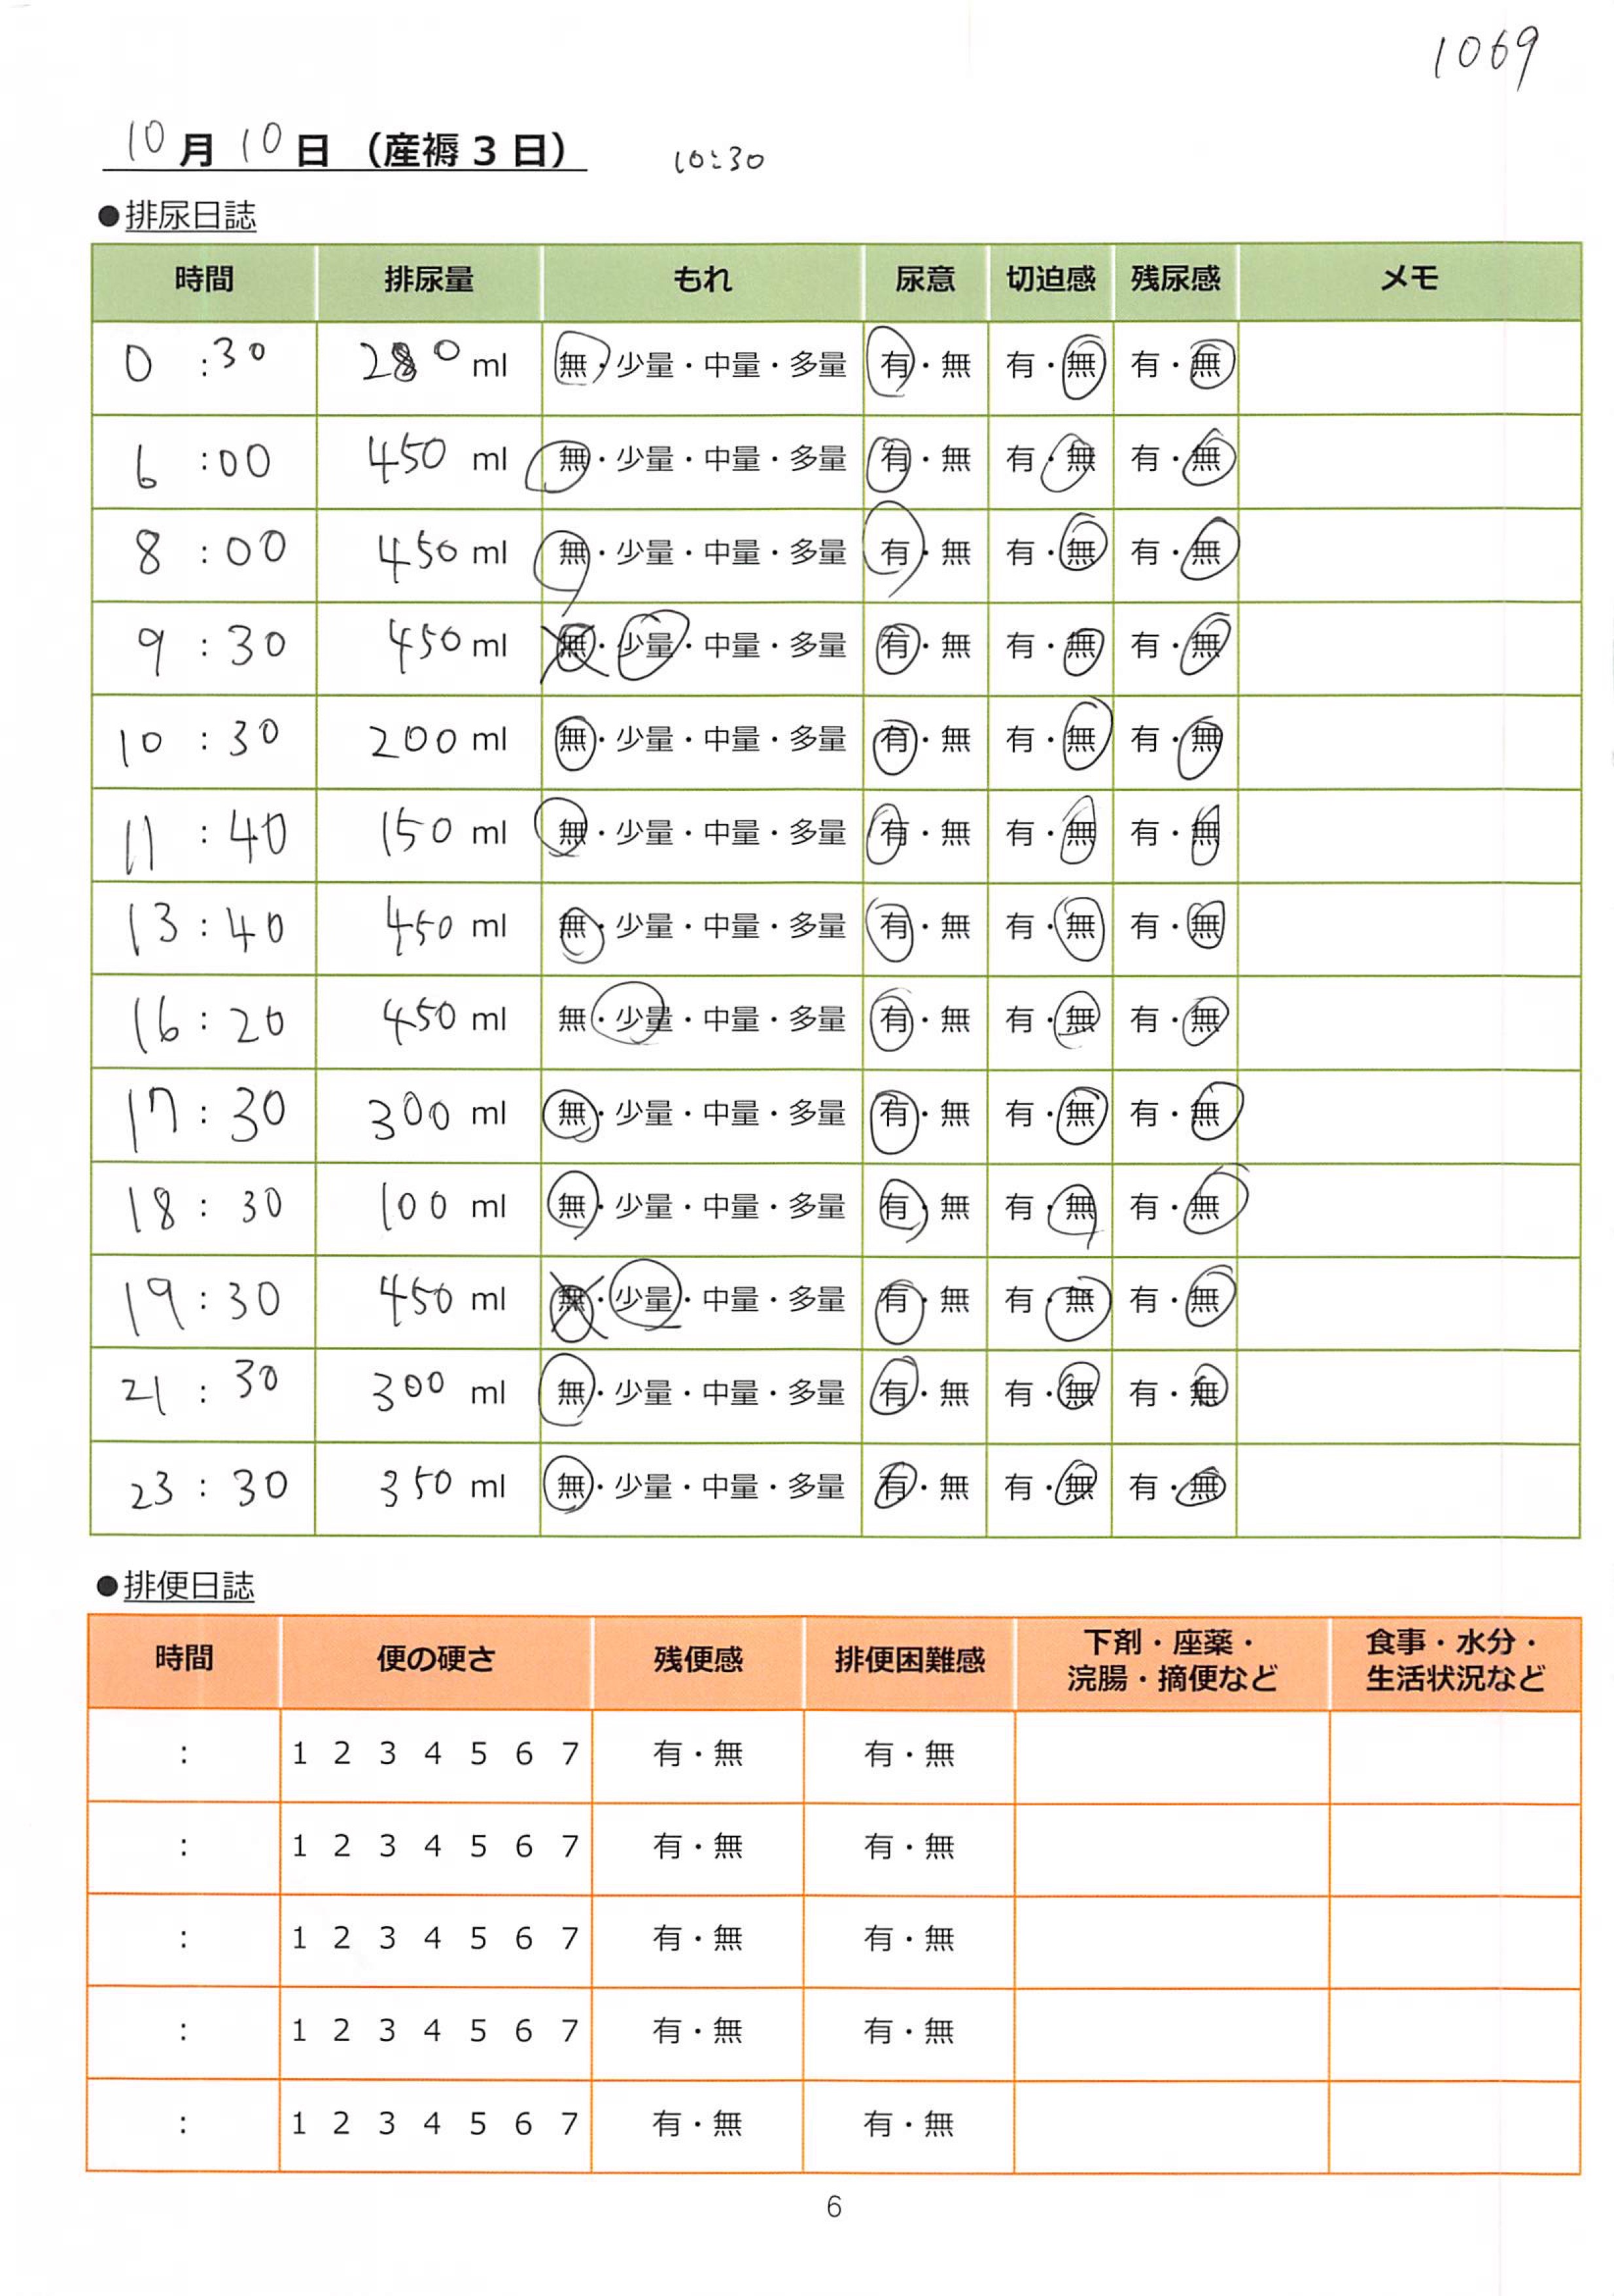 1069
10月10日（産褥3日） 10:30
●排尿日誌
時間 排尿量 もれ 尿意 切迫感 残尿感 メモ
0:30 280ml 無・少量・中量・多量 有・無 有・無 有・無
6:00 450ml 無・少量・中量・多量 有・無 有・無 有・無
8:00 450ml 無・少量・中量・多量 有・無 有・無 有・無
9:30 450ml 無・少量・中量・多量 有・無 有・無 有・無
10:30 200ml 無・少量・中量・多量 有・無 有・無 有・無
11:40 150ml 無・少量・中量・多量 有・無 有・無 有・無
13:40 450ml 無・少量・中量・多量 有・無 有・無 有・無
16:20 450ml 無・少量・中量・多量 有・無 有・無 有・無
17:30 300ml 無・少量・中量・多量 有・無 有・無 有・無
18:30 100ml 無・少量・中量・多量 有・無 有・無 有・無
19:30 450ml 無・少量・中量・多量 有・無 有・無 有・無
21:30 300ml 無・少量・中量・多量 有・無 有・無 有・無
23:30 350ml 無・少量・中量・多量 有・無 有・無 有・無
●排便日誌
時間 便の硬さ 残便感 排便困難感 下剤・座薬・浣腸・摘便など 食事・水分・生活状況など
: 1 2 3 4 5 6 7 有・無 有・無
: 1 2 3 4 5 6 7 有・無 有・無
: 1 2 3 4 5 6 7 有・無 有・無
: 1 2 3 4 5 6 7 有・無 有・無
: 1 2 3 4 5 6 7 有・無 有・無
6